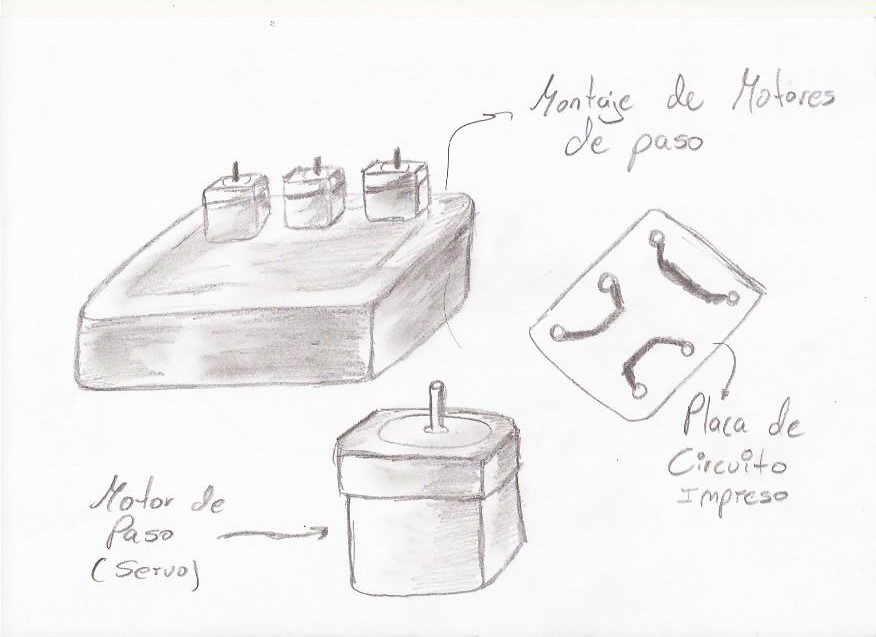 Montaje de Motores
de paso
Placa de
Circuito
Impreso
Motor de
Paso
(Servo)